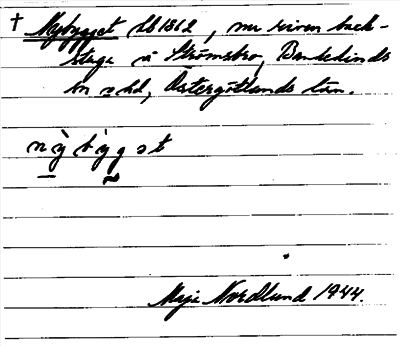 † Nybygget lb 1862, nu riven back-
stuga å Strömsbro, Bankekinds
sn o hd, Östergötlands län.
nỳbýgət
Maja Nordlund 1944.